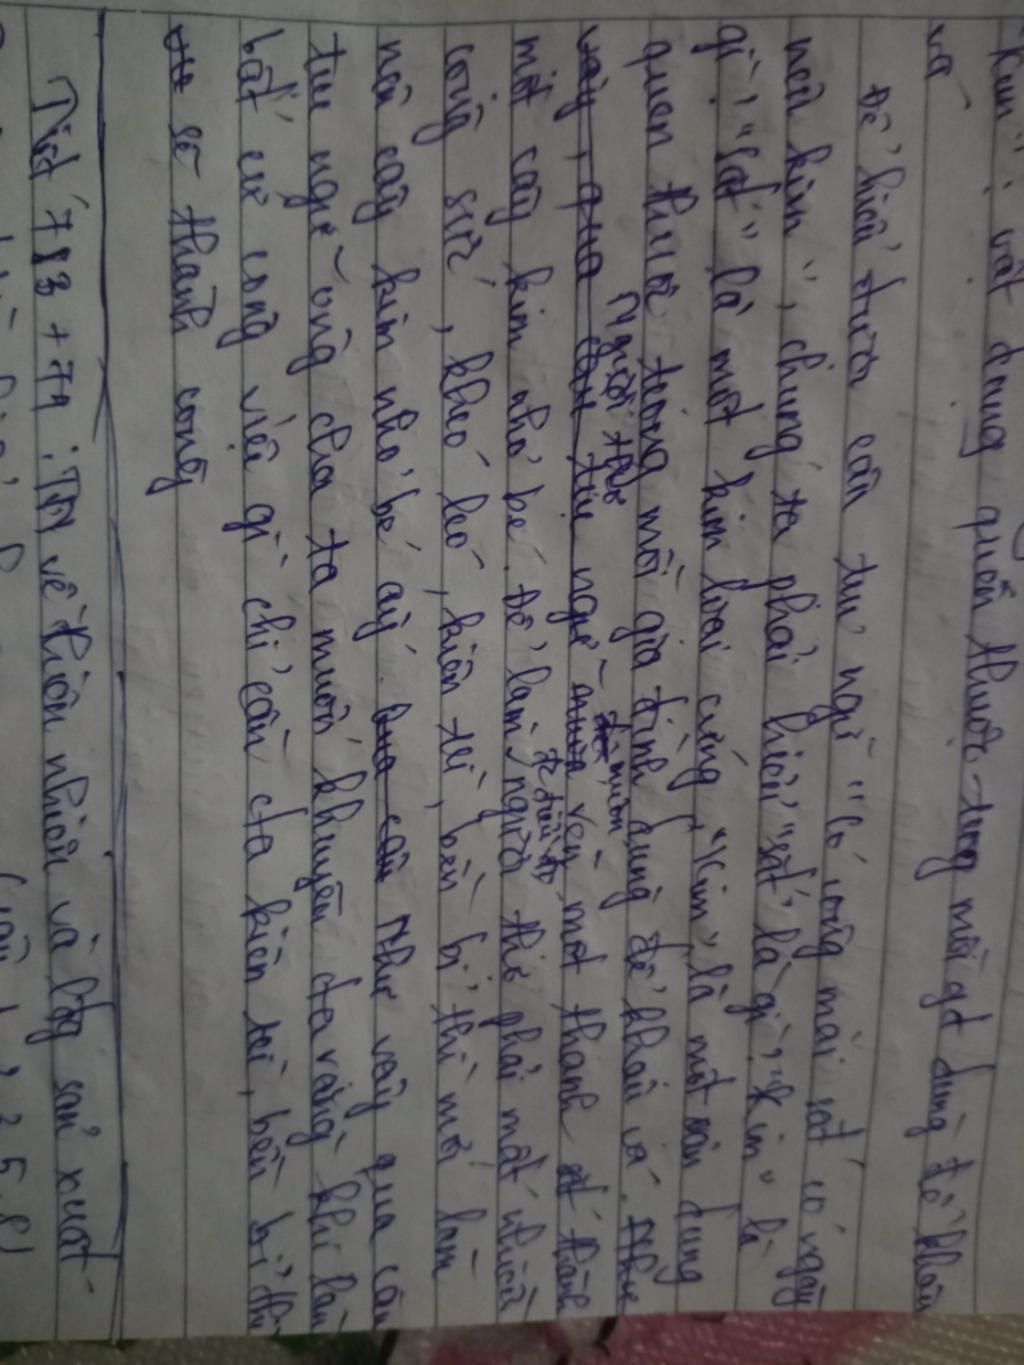 Kim": vật dụng quen thuộc trong mỗi gđ dùng để khâu
vá
Để hiểu được câu tục ngữ "Có công mài sắt có ngày
nên kim", chúng ta phải hiểu "sắt" là gì, "Kim" là
gì, "Sắt" là một kim loại cứng, "Kim" là một vật dụng
quen thuộc trong mỗi gia đình dùng để khâu vá. Như
vậy, qua câu tục ngữ Người xưa muốn ví một thanh sắt thành
một cây kim nhỏ bé. Để làm được điều đó, người thợ phải mất nhiều
công sức, khéo léo, kiên trì, bền bỉ thì mới làm
nên cây kim nhỏ bé ấy. Như vậy qua câu
tục ngữ ông cha ta muốn khuyên cta rằng: khi làm
bất cứ công việc gì chỉ cần cta kiên trì, bền bỉ thì
sẽ thành công
Tiết 783 + 74: TN về thiên nhiên và lđg sản xuất